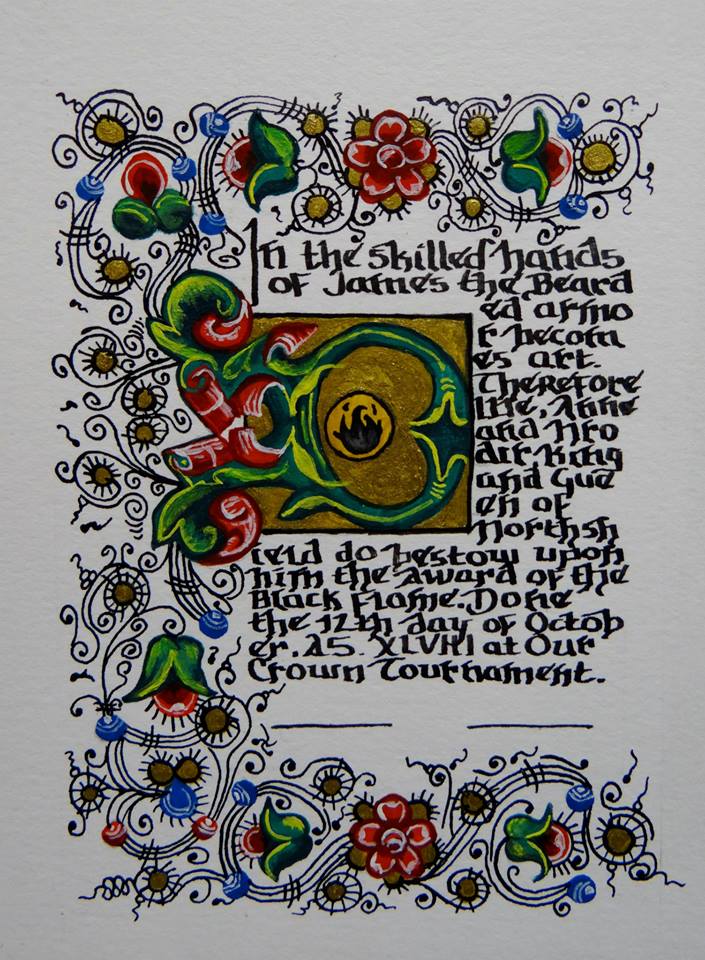 In the skilled hands
of James the Beard
ed armo
r becom
es art.
Therefore
We, Anne
and Hro
dir King
and Que
en of
Northsh
ield do bestow upon
him the award of the
Black Flame. Done
the 12th day of Octob
er. AS. XLVIII at Our
Crown Tournament.